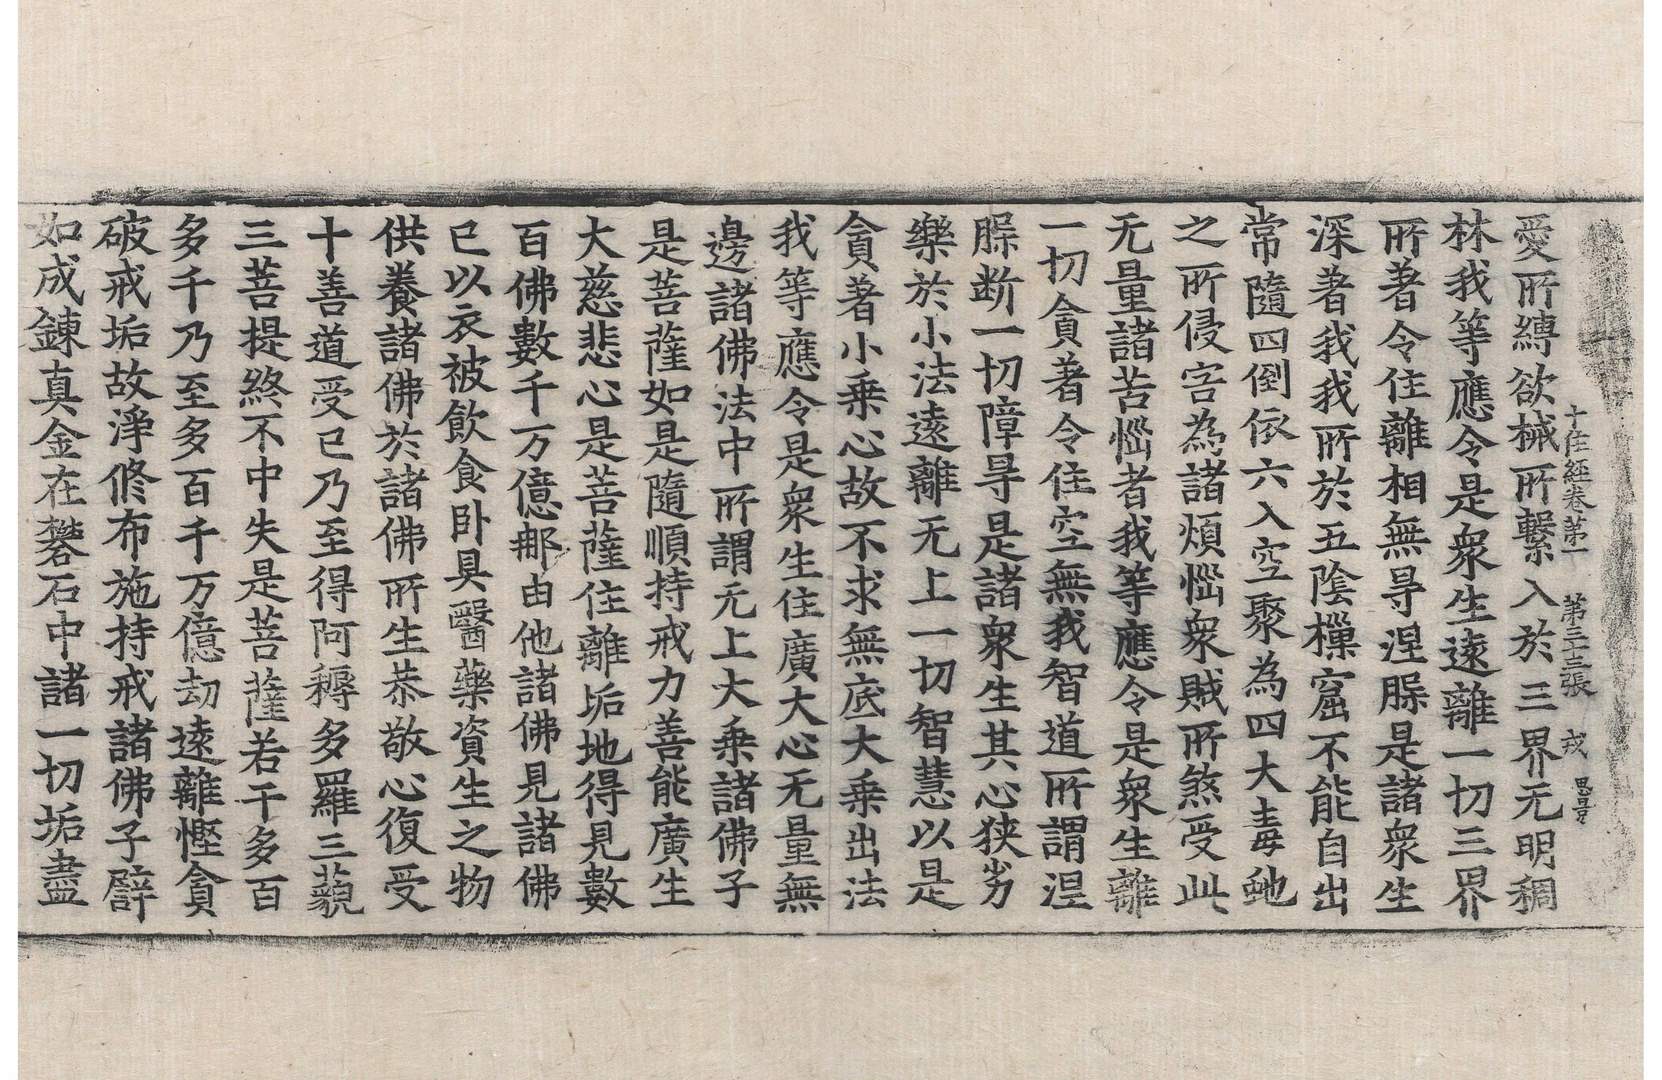 十住經卷第一 第三十三張 戎
愛所縛欲械所繫入於三界无明稠
林我等應令是衆生遠離一切三界
所著令住離相無㝵涅槃是諸衆生
深著我我所於五陰樔窟不能自出
常隨四倒依六入空聚為四大毒虵
之所侵害為諸煩惱衆賊所煞受此
无量諸苦惱者我等應令是衆生離
一切貪著令住空無我智道所謂涅
槃断一切障㝵是諸衆生其心狹劣
樂於小法遠離无上一切智慧以是
貪著小乗心故不求無底大乗出法
我等應令是衆生住廣大心无量無
邊諸佛法中所謂无上大乗諸佛子
是菩薩如是隨順持戒力善能廣生
大慈悲心是菩薩住離垢地得見數
百佛數千万億那由他諸佛見諸佛
已以衣被飲食卧具醫藥資生之物
供養諸佛於諸佛所生恭敬心復受
十善道受已乃至得阿耨多羅三藐
三菩提終不中失是菩薩若干多百
多千乃至多百千万億劫遠離慳貪
破戒垢故淨修布施持戒諸佛子譬
如成鍊真金在礬石中諸一切垢盡